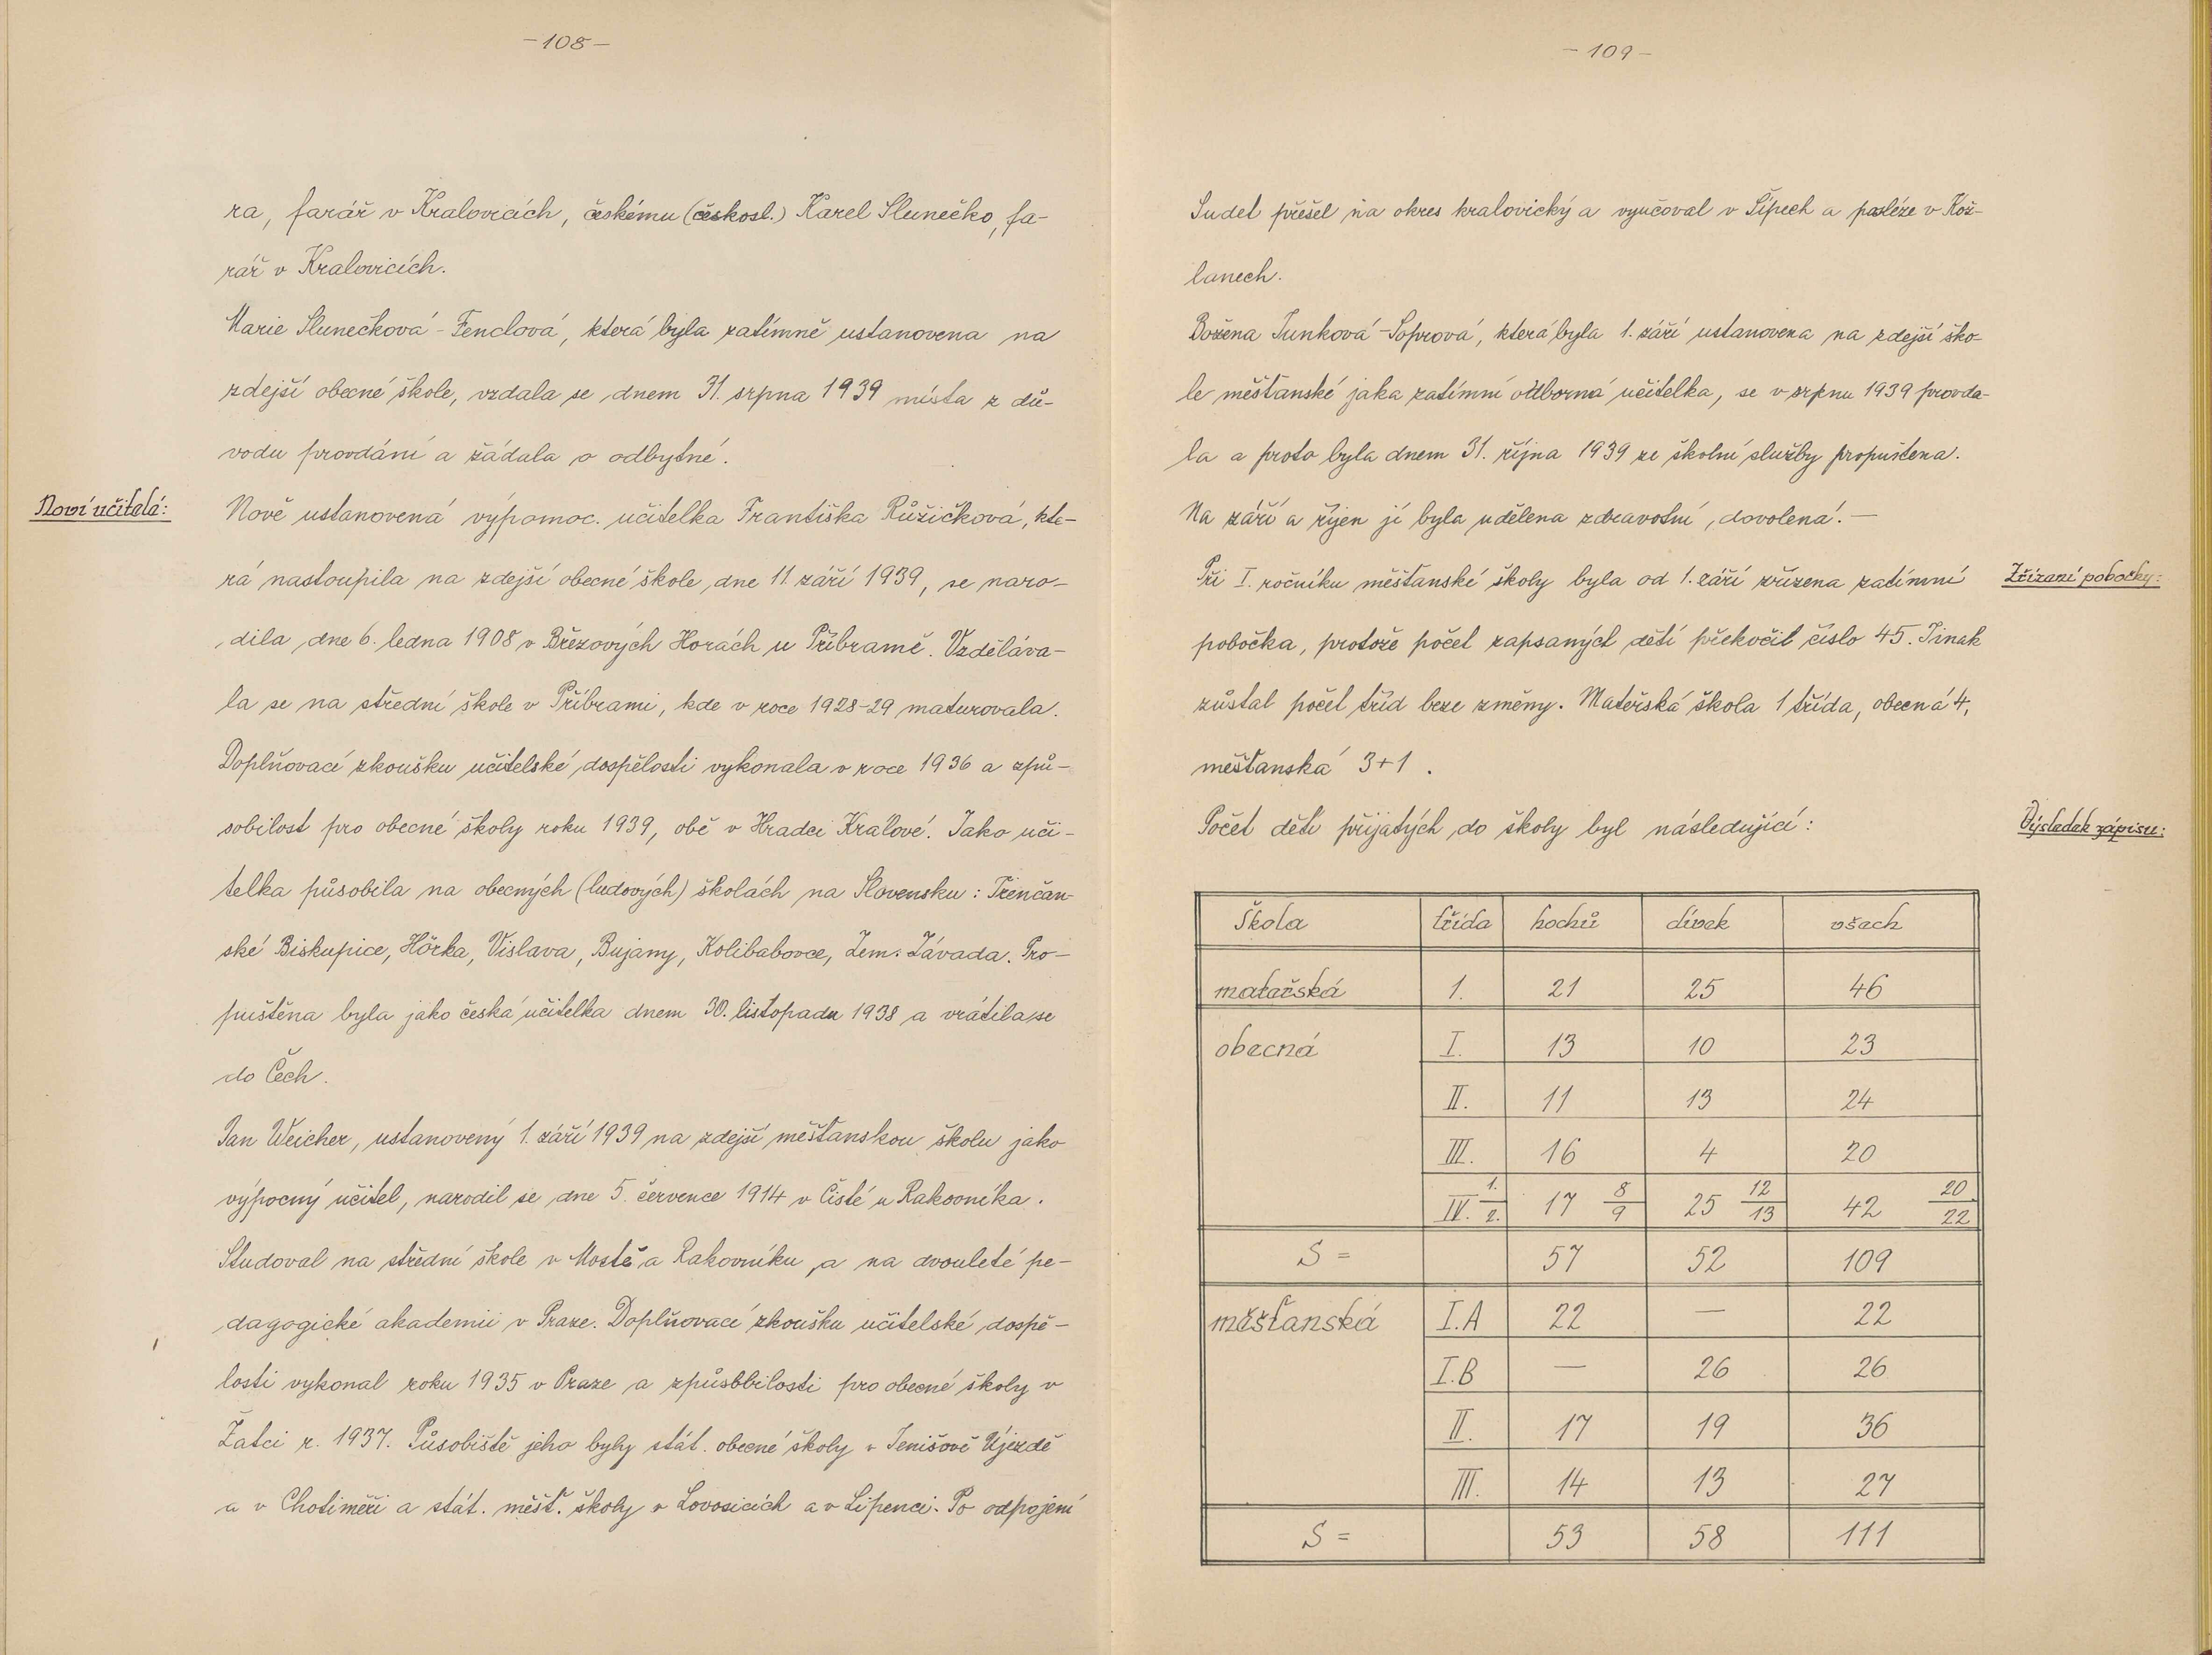 – 108 –
ra, farář v Kralovicích, českému (českosl.) Karel Slunečko, fa-
rář v Kralovicích.
Marie Slunečková - Fenclová, která byla zatímně ustanovena na
zdejší obecné škole, vzdala se dnem 31. srpna 1939 místa z dů-
vodu provdání a žádala o odbytné.
Noví učitelé:
Nově ustanovená výpomoc. učitelka Františka Růžičková, kte-
rá nastoupila na zdejší obecné škole dne 11. září 1939, se naro-
dila dne 6. ledna 1908 v Březových Horách u Příbramě. Vzděláva-
la se na střední škole v Příbrami, kde v roce 1928-29 maturovala.
Doplňovací zkoušku učitelské dospělosti vykonala v roce 1936 a způ-
sobilost pro obecné školy roku 1939, obě v Hradci Králové. Jako uči-
telka působila na obecných (ludových) školách na Slovensku: Trenčan-
ské Biskupice, Hôrka, Vislava, Bujany, Kolibabovce, Zem. Závada. Pro-
puštěna byla jako česká učitelka dnem 30. listopadu 1938 a vrátila se
do Čech.
Jan Weicher, ustanovený 1. září 1939 na zdejší měšťanskou školu jako
výpocný učitel, narodil se dne 5. července 1914 v Čisté u Rakovníka.
Studoval na střední škole v Mostě a Rakovníku a na dvouleté pe-
dagogické akademii v Praze. Doplňovací zkoušku učitelské dospě-
losti vykonal roku 1935 v Praze a způsobilosti pro obecné školy v
Žatci r. 1937. Působiště jeho byly stát. obecné školy v Jenišově Újezdě
a v Chotiměři a stát. měšť. školy v Lovosicích a v Lipenci. Po odpojení
– 109 –
Sudet přešel na okres kralovický a vyučoval v Šípech a posléze v Kož-
lanech.
Božena Tunková - Soprová, která byla 1. září ustanovena na zdejší ško-
le měšťanské jaka zatímní odborná učitelka, se v srpnu 1939 provda-
la a proto byla dnem 31. října 1939 ze školní služby propuštena.
Na září a říjen jí byla udělena zdravotní dovolená. —
Při I. ročníku měšťanské školy byla od 1. září zřízena zatímní
Zřízení pobočky:
pobočka, protože počet zapsaných dětí překočil číslo 45. Jinak
zůstal počet tříd beze změny. Mateřská škola 1 třída, obecná 4,
měšťanská 3+1.
Počet dětí přijatých do školy byl následující:
Výsledek zápisu:
Škola třída hochů dívek všech
mateřská 1. 21 25 46
obecná I. 13 10 23
II. 11 13 24
III. 16 4 20
IV. 1./2. 17 8/9 25 12/13 42 20/22
S = 57 52 109
měšťanská I.A 22 — 22
I.B — 26 26
II. 17 19 36
III. 14 13 27
S = 53 58 111